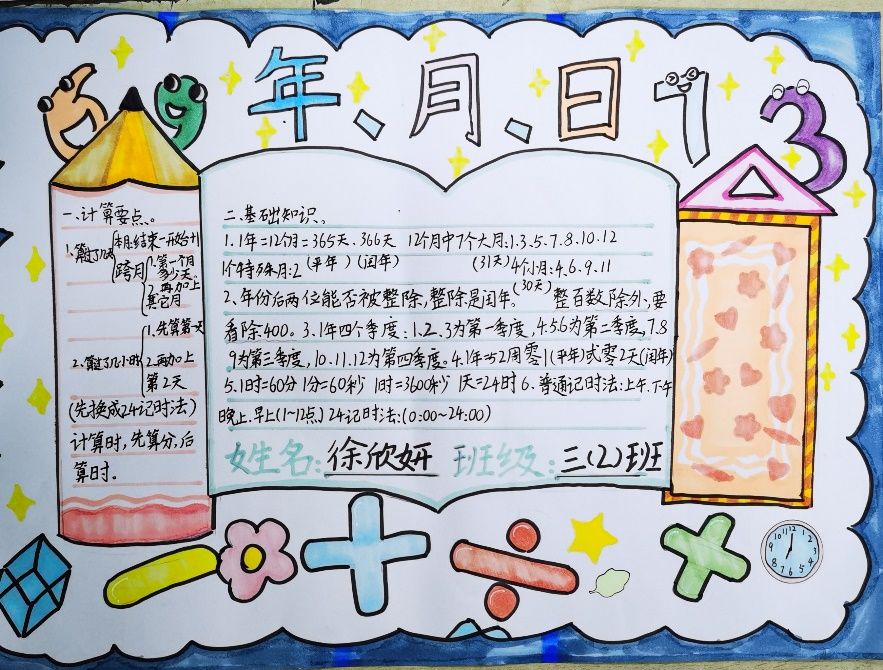 年、月、日
一、计算要点。
1.算过了几天
本月:结束-开始+1
跨月
1.第一个月多少天。
2.再加上其它月
2.算过了几小时
1.先算第一天
2.再加上第2天
(先换成24记时法)
计算时,先算分,后
算时。
二、基础知识。
1.1年=12个月=365天、366天 12个月中7个大月:1.3.5.7.8.10.12
1个特殊月:2 (平年)(闰年) (31天)4个小月:4.6.9.11
(30天)
2、年份后两位能否被整除,整除是闰年。 整百数除外,要
看除400。3.1年四个季度:1.2.3为第一季度,4.5.6为第二季度,7.8
9为第三季度,10.11.12为第四季度。4.1年=52周零1(平年)或零2天(闰年)
5.1时=60分 1分=60秒 1时=3600秒 1天=24时 6.普通记时法:上午.下午
晚上.早上(1~12点) 24记时法:(0:00~24:00)
姓名:徐欣妍 班级:三(2)班
12
11
1
10
2
9
3
8
4
7
5
6